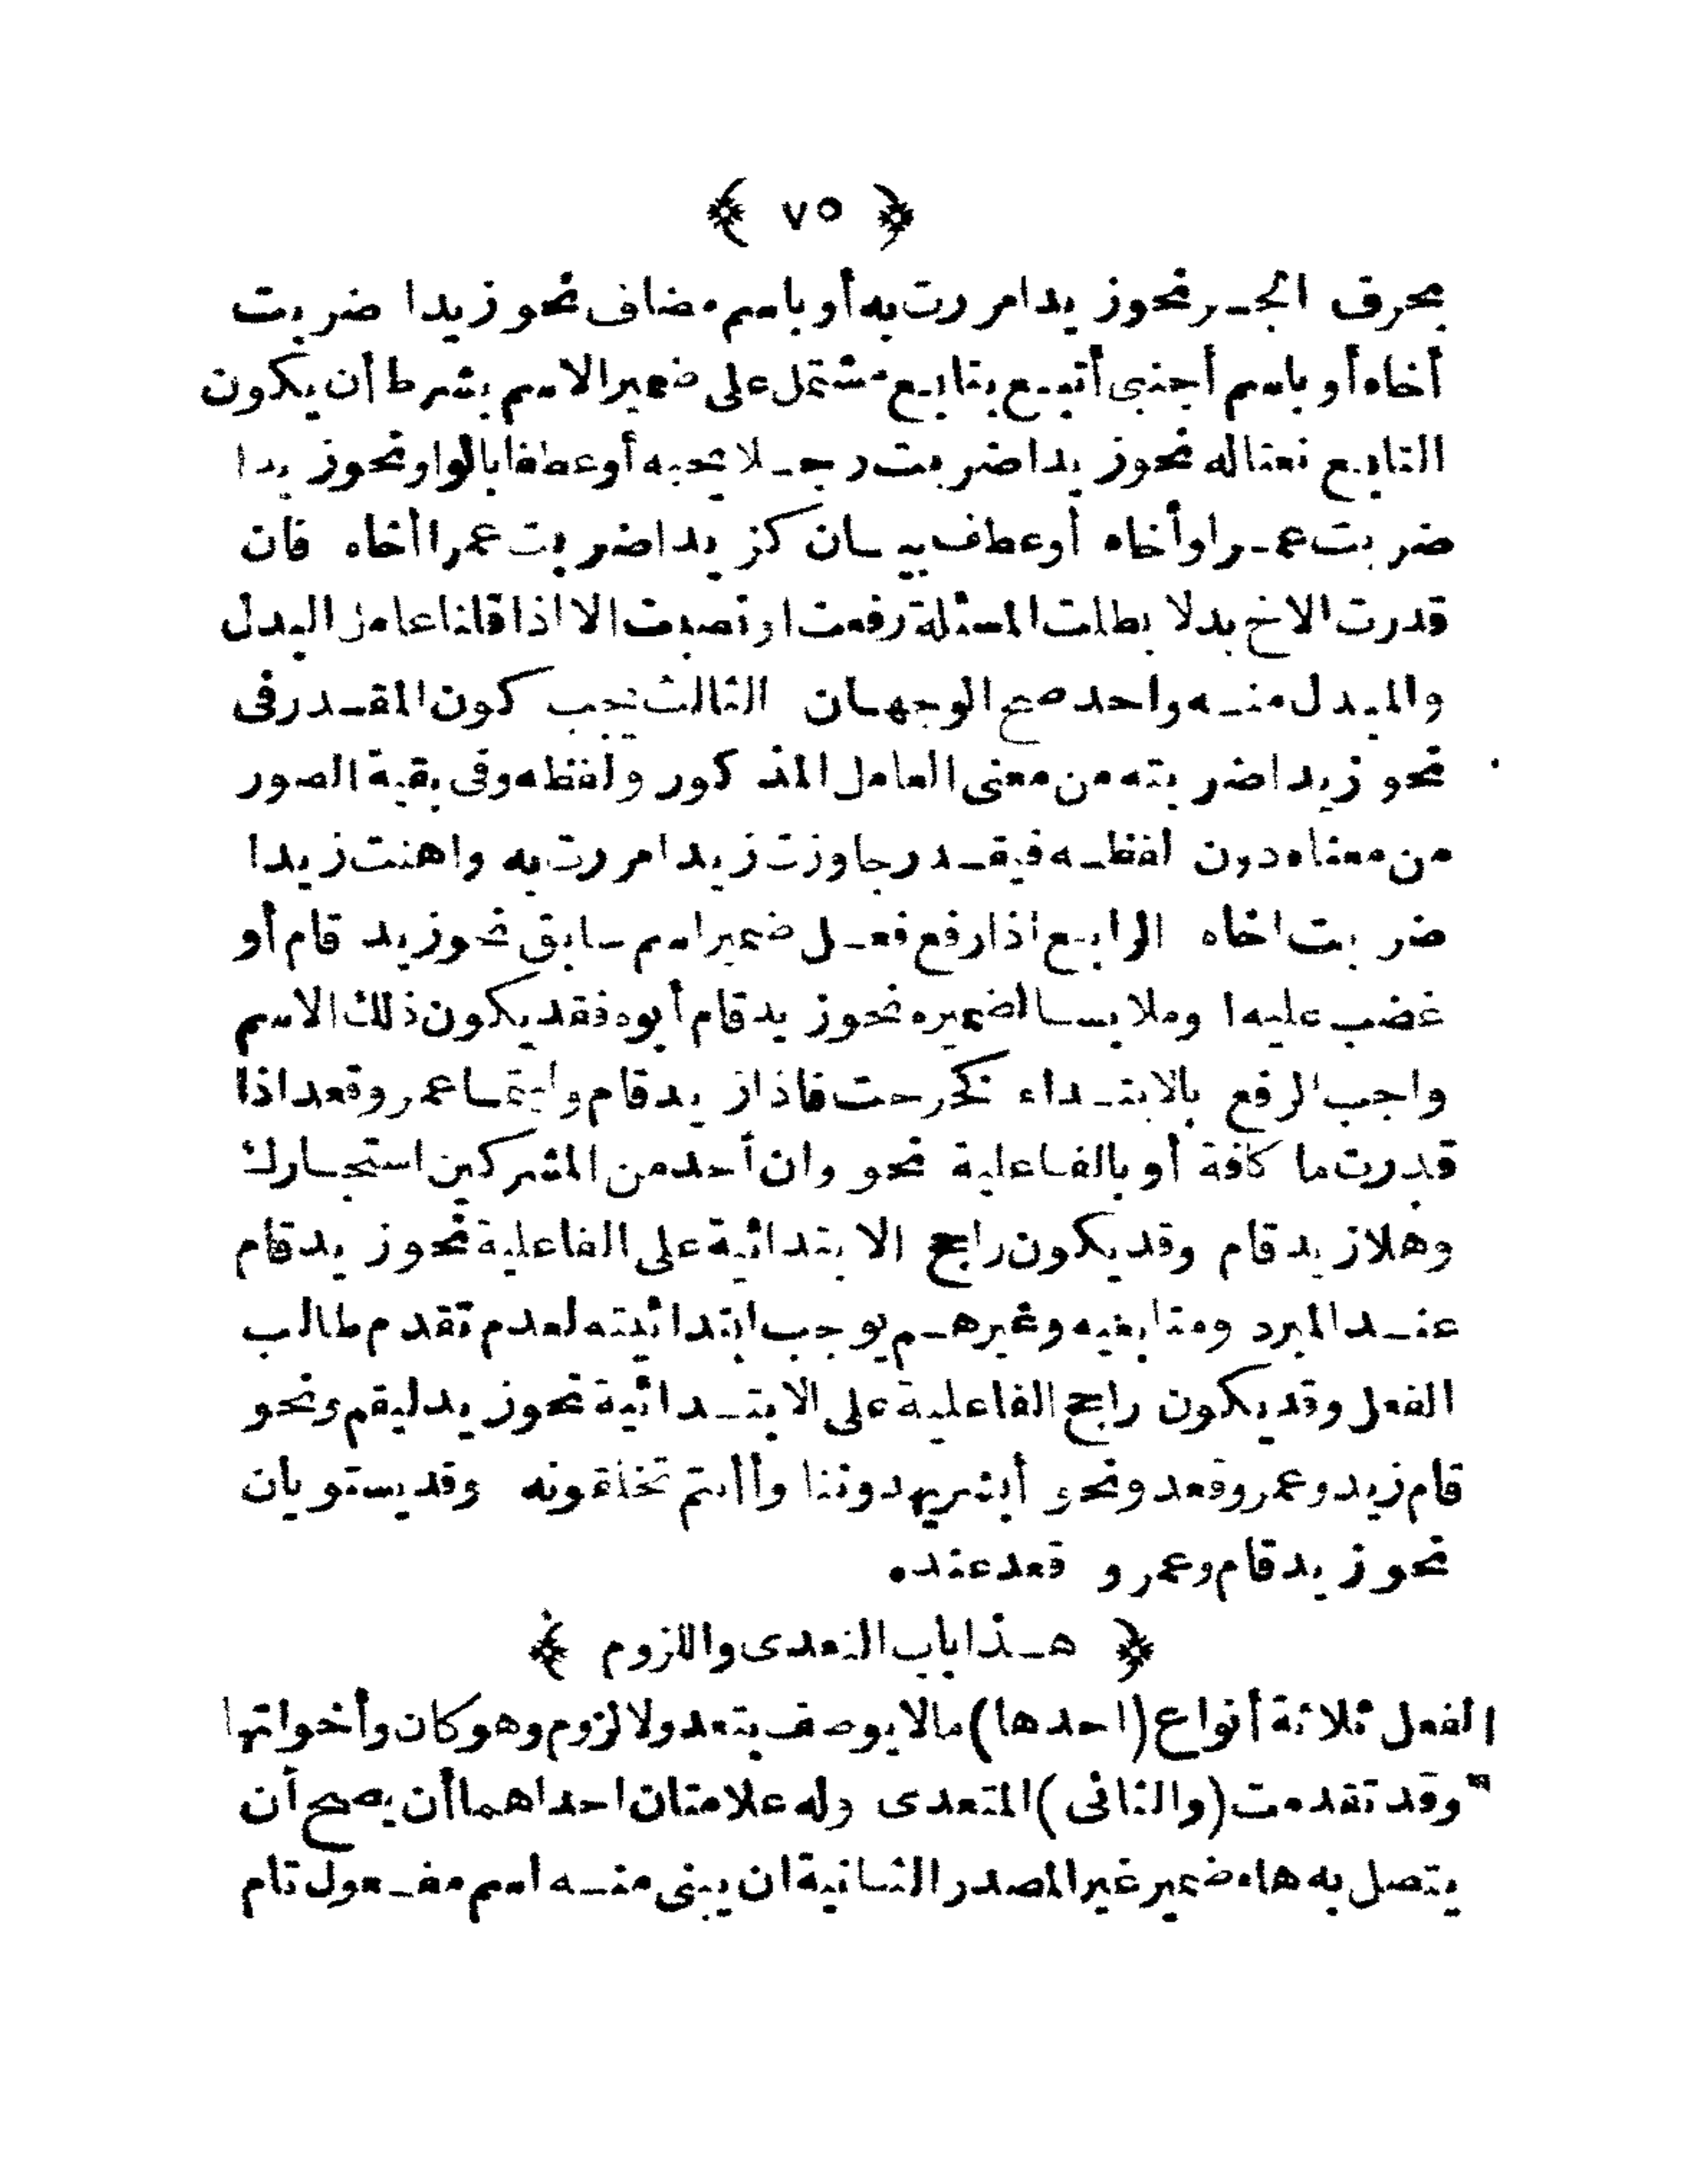 ﴿ ٧٥ ﴾
بحرف الجر نحو زيدا مررت به أو باسم مضاف نحو زيدا ضربت
أخاه أو باسم أجنبى أتبع بتابع مشتمل على ضمير الاسم بشرط أن يكون
التابع نعتا له نحو زيدا ضربت رجلا يحبه أو عطفا بالواو نحو زيدا
ضربت عمرا وأخاه أو عطف بيان كزيدا ضربت عمرا أخاه فان
قدرت الاخ بدلا بطلت المسئلة رفعت او نصبت الا اذا قلنا عامل البدل
والمبدل منه واحد صح الوجهان الثالث يجب كون المقدر فى
نحو زيدا ضربته من معنى العامل المذكور ولفظه وفى بقية الصور
من معناه دون لفظه فيقدر جاوزت زيدا مررت به واهنت زيدا
ضربت اخاه الرابع اذا رفع فعل ضمير اسم سابق نحو زيد قام أو
غضب عليه ا وملابسا لضميره نحو زيد قام أبوه فقد يكون ذلك الاسم
واجب الرفع بالابتداء كخرجت فاذا زيد قام وليتما عمرو قعد اذا
قدرت ما كافة أو بالفاعلية نحو وان أحد من المشركين استجارك
وهلا زيد قام وقد يكون راجح الابتدائية على الفاعلية نحو زيد قام
عند المبرد ومتابعيه وغيرهم يوجب ابتدائيته لعدم تقدم طالب
الفعل وقد يكون راجح الفاعلية على الابتدائية نحو زيد ليقم ونحو
قام زيد وعمرو قعد ونحو أبشر يهدوننا وأأنتم تخلقونه وقد يستويان
نحو زيد قام وعمرو قعد عنده
﴿ هذا باب التعدى واللزوم ﴾
الفعل ثلاثة أنواع (احدها) مالا يوصف بتعد ولا لزوم وهو كان وأخواتها
وقد تقدمت (والثانى) المتعدى وله علامتان احداهما أن يصح أن
يتصل به هاء ضمير غير المصدر الثانية ان يبنى منه اسم مفعول تام